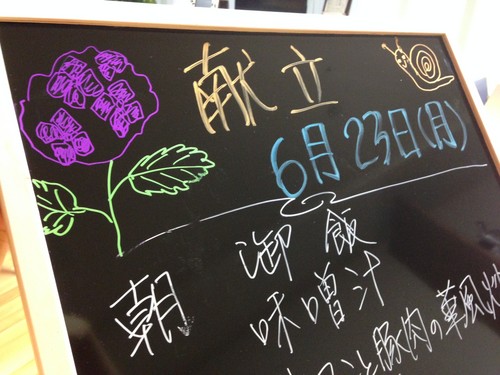 献立
6月23日(月)
朝 御飯
味噌汁
豚肉の